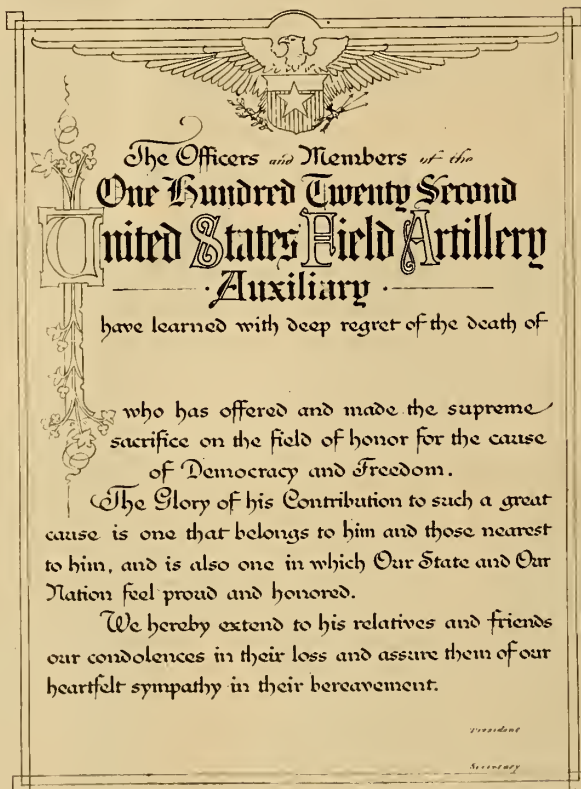 The Officers and Members of the
One Hundred Twenty Second
United States Field Artillery
· Auxiliary ·
have learned with deep regret of the death of
who has offered and made the supreme
sacrifice on the field of honor for the cause
of Democracy and Freedom.
The Glory of his Contribution to such a great
cause is one that belongs to him and those nearest
to him, and is also one in which Our State and Our
Nation feel proud and honored.
We hereby extend to his relatives and friends
our condolences in their loss and assure them of our
heartfelt sympathy in their bereavement.
President
Secretary